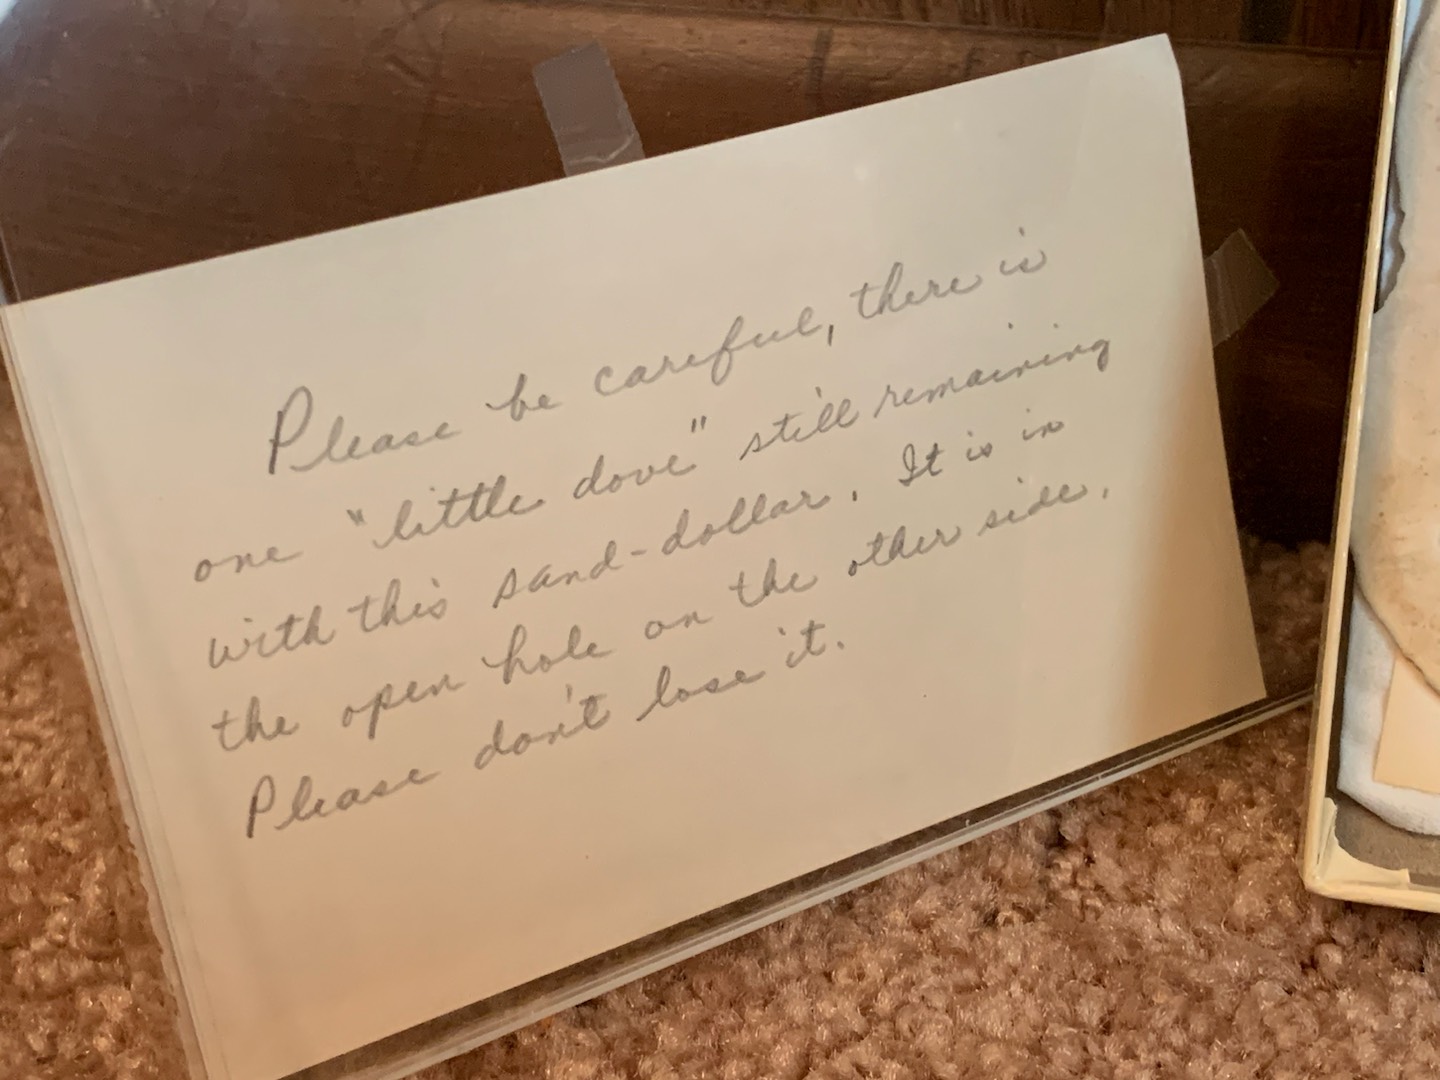 Please be careful, there is
one "little dove" still remaining
with this sand-dollar. It is in
the open hole on the other side.
Please don't lose it.